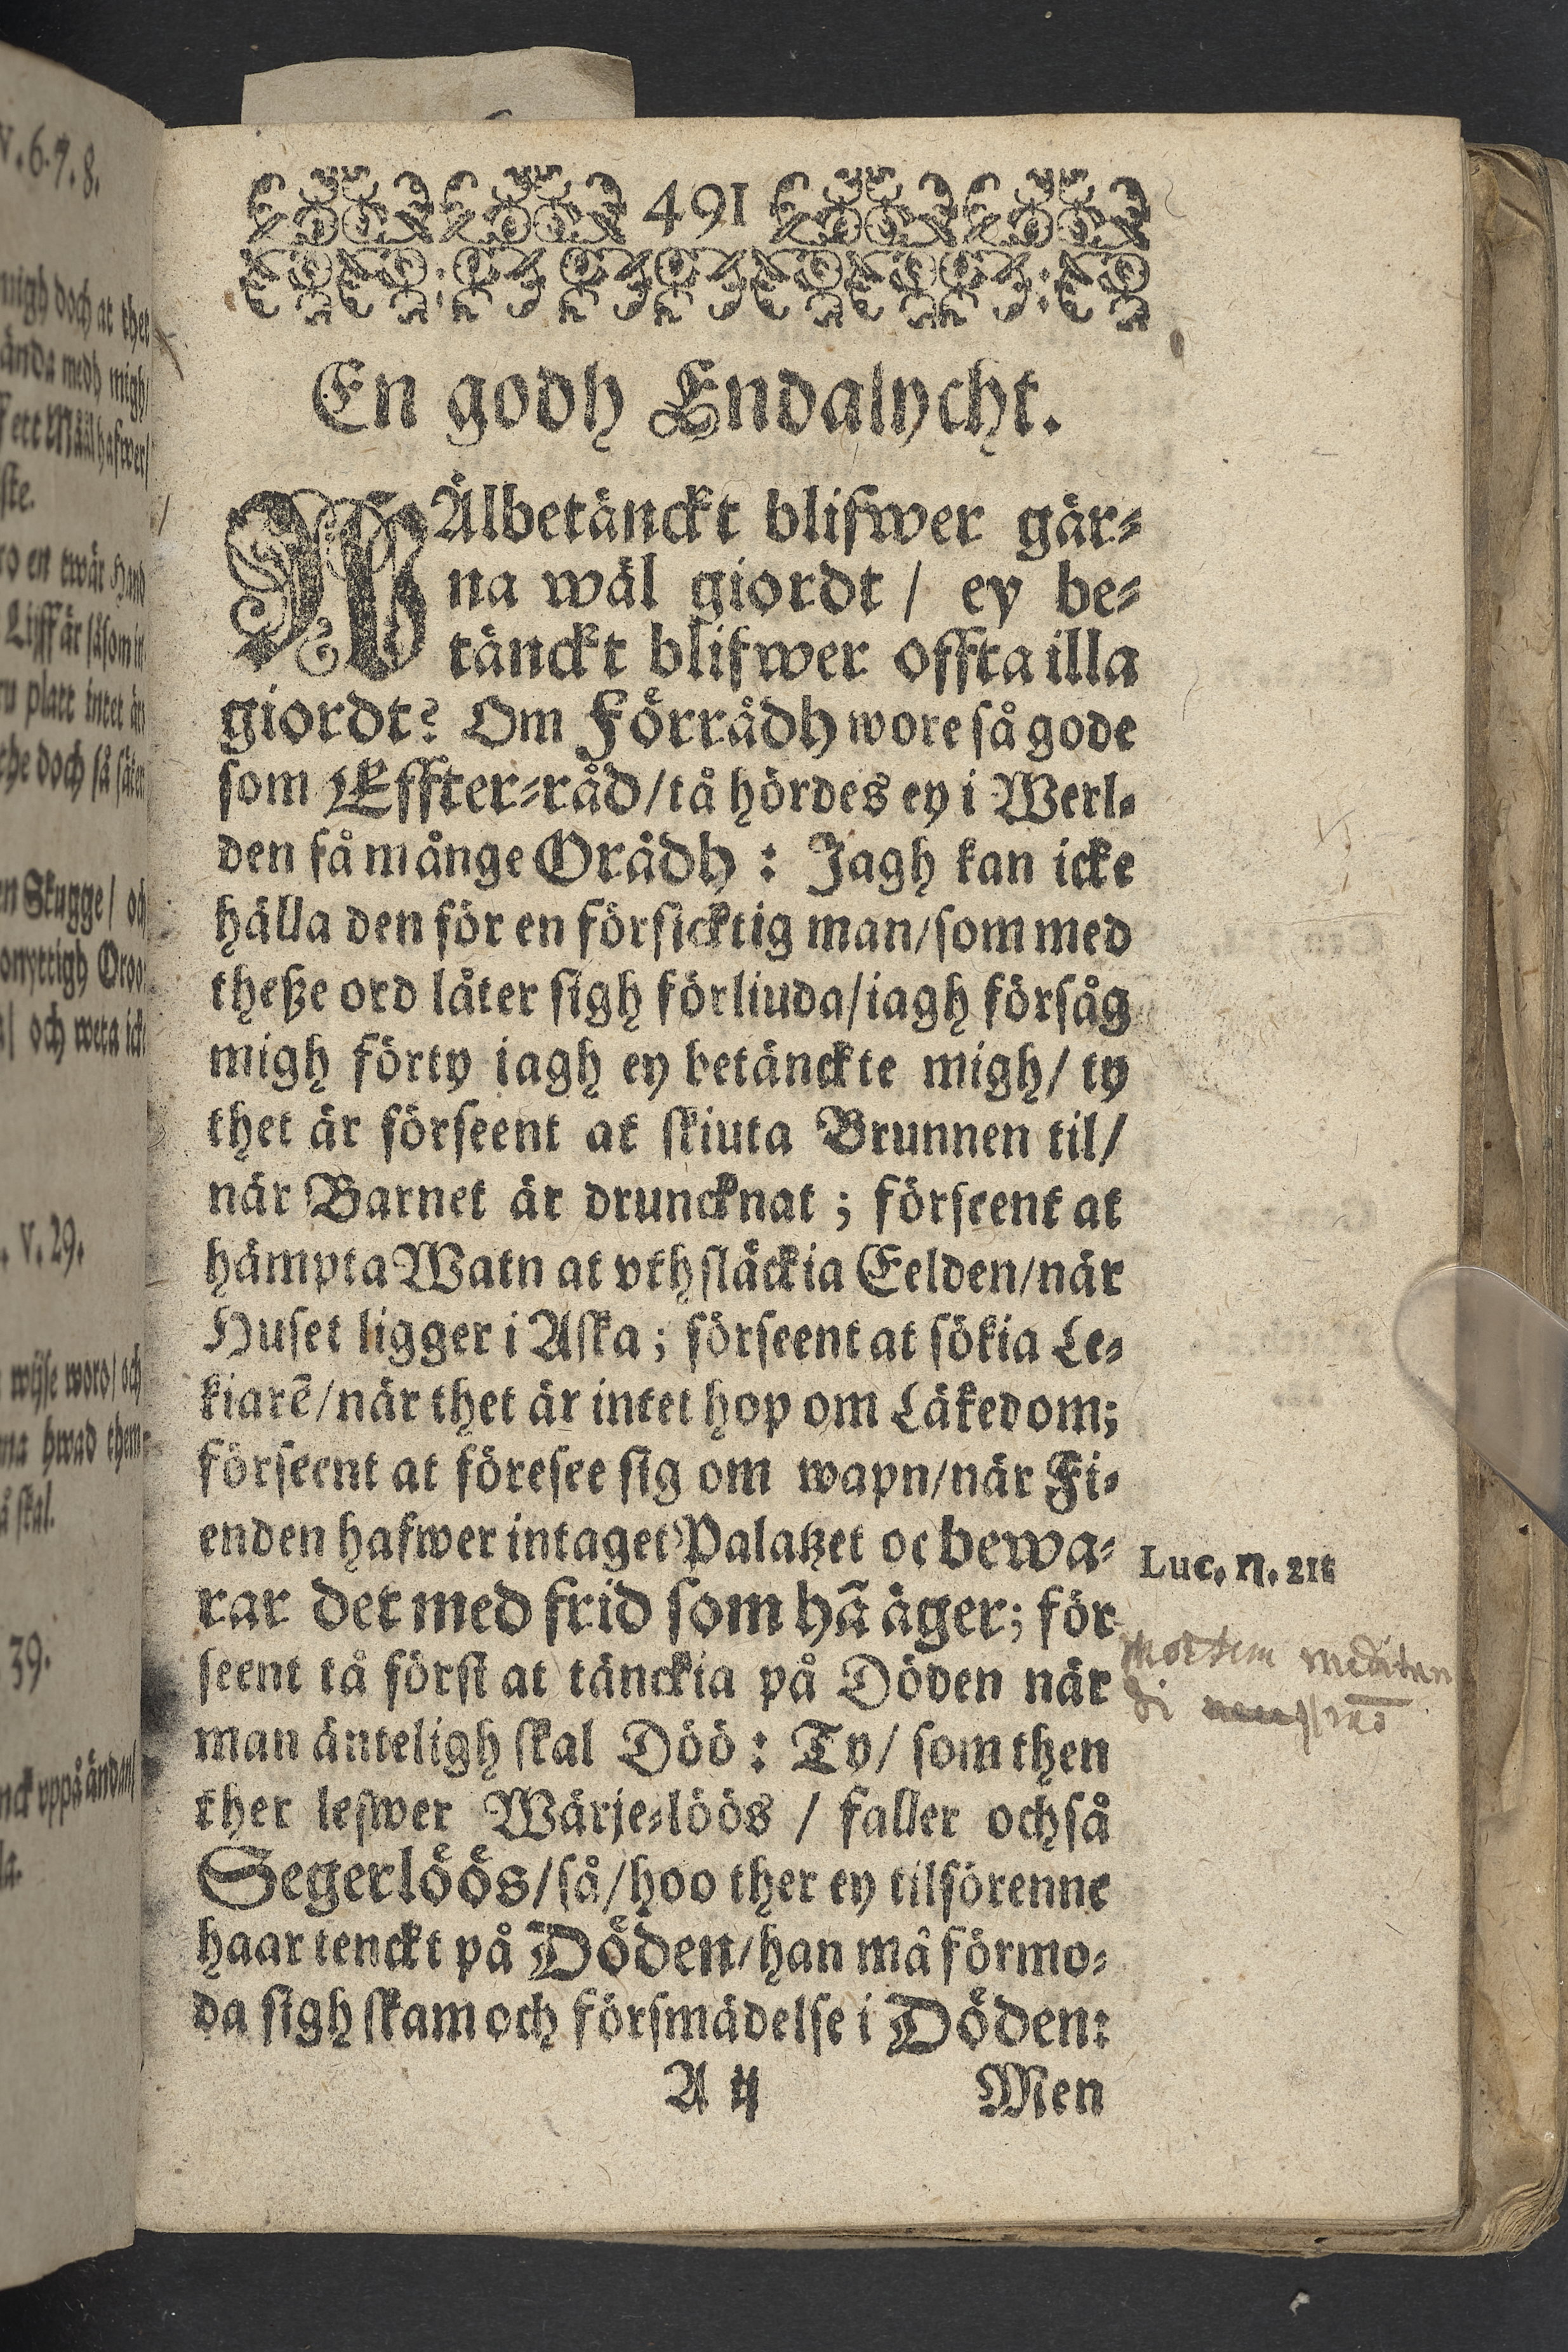 491
En godh Endalycht.
WÄlbetänckt blifwer gär-
na wäl giordt / ey be-
tänckt blifwer offta illa
giordt? Om Förrådh wore så gode
som Effter-råd/tå hördes ey i Werl-
den så månge Orådh : Jagh kan icke
hålla den för en försicktig man/som med
theße ord låter sigh förliuda/iagh försåg
migh förty iagh ey betänckte migh/ ty
thet är förseent at skiuta Brunnen til/
när Barnet är druncknat ; förseent at
hämpta Watn at vthsläckia Eelden/när
Huset ligger i Aska; förseent at sökia Le-
kiarē/när thet är intet hop om Läkedom;
förseent at föresee sig om wapn/när Fi-
enden hafwer intaget Palatzet oc bewa-
rar det med frid som hā äger; för
seent tå först at tänckia på Döden när
man änteligh skal Döö : Ty/ som then
ther lefwer Wärje-löös / faller ochså
Segerlöös/så/hoo ther ey tilförenne
haar tenckt på Döden/han må förmo-
da sigh skam och försmädelse i Döden:
A ij Men
Luc. 11. 21t
Mortem meditan
di
N.6.7.8.
migh doch at thet
ända medh migh/
ett Määl hafwer/
ste.
ro en twär Hand
Lijff är såsom in-
ru platt intet än
the doch så säker
en Skugge/ och
onyttigh Oroo
och weta icke
. v. 29.
wijse woro/ och
na hwad them
å skal.
39.
nck vppå ändan/
la.